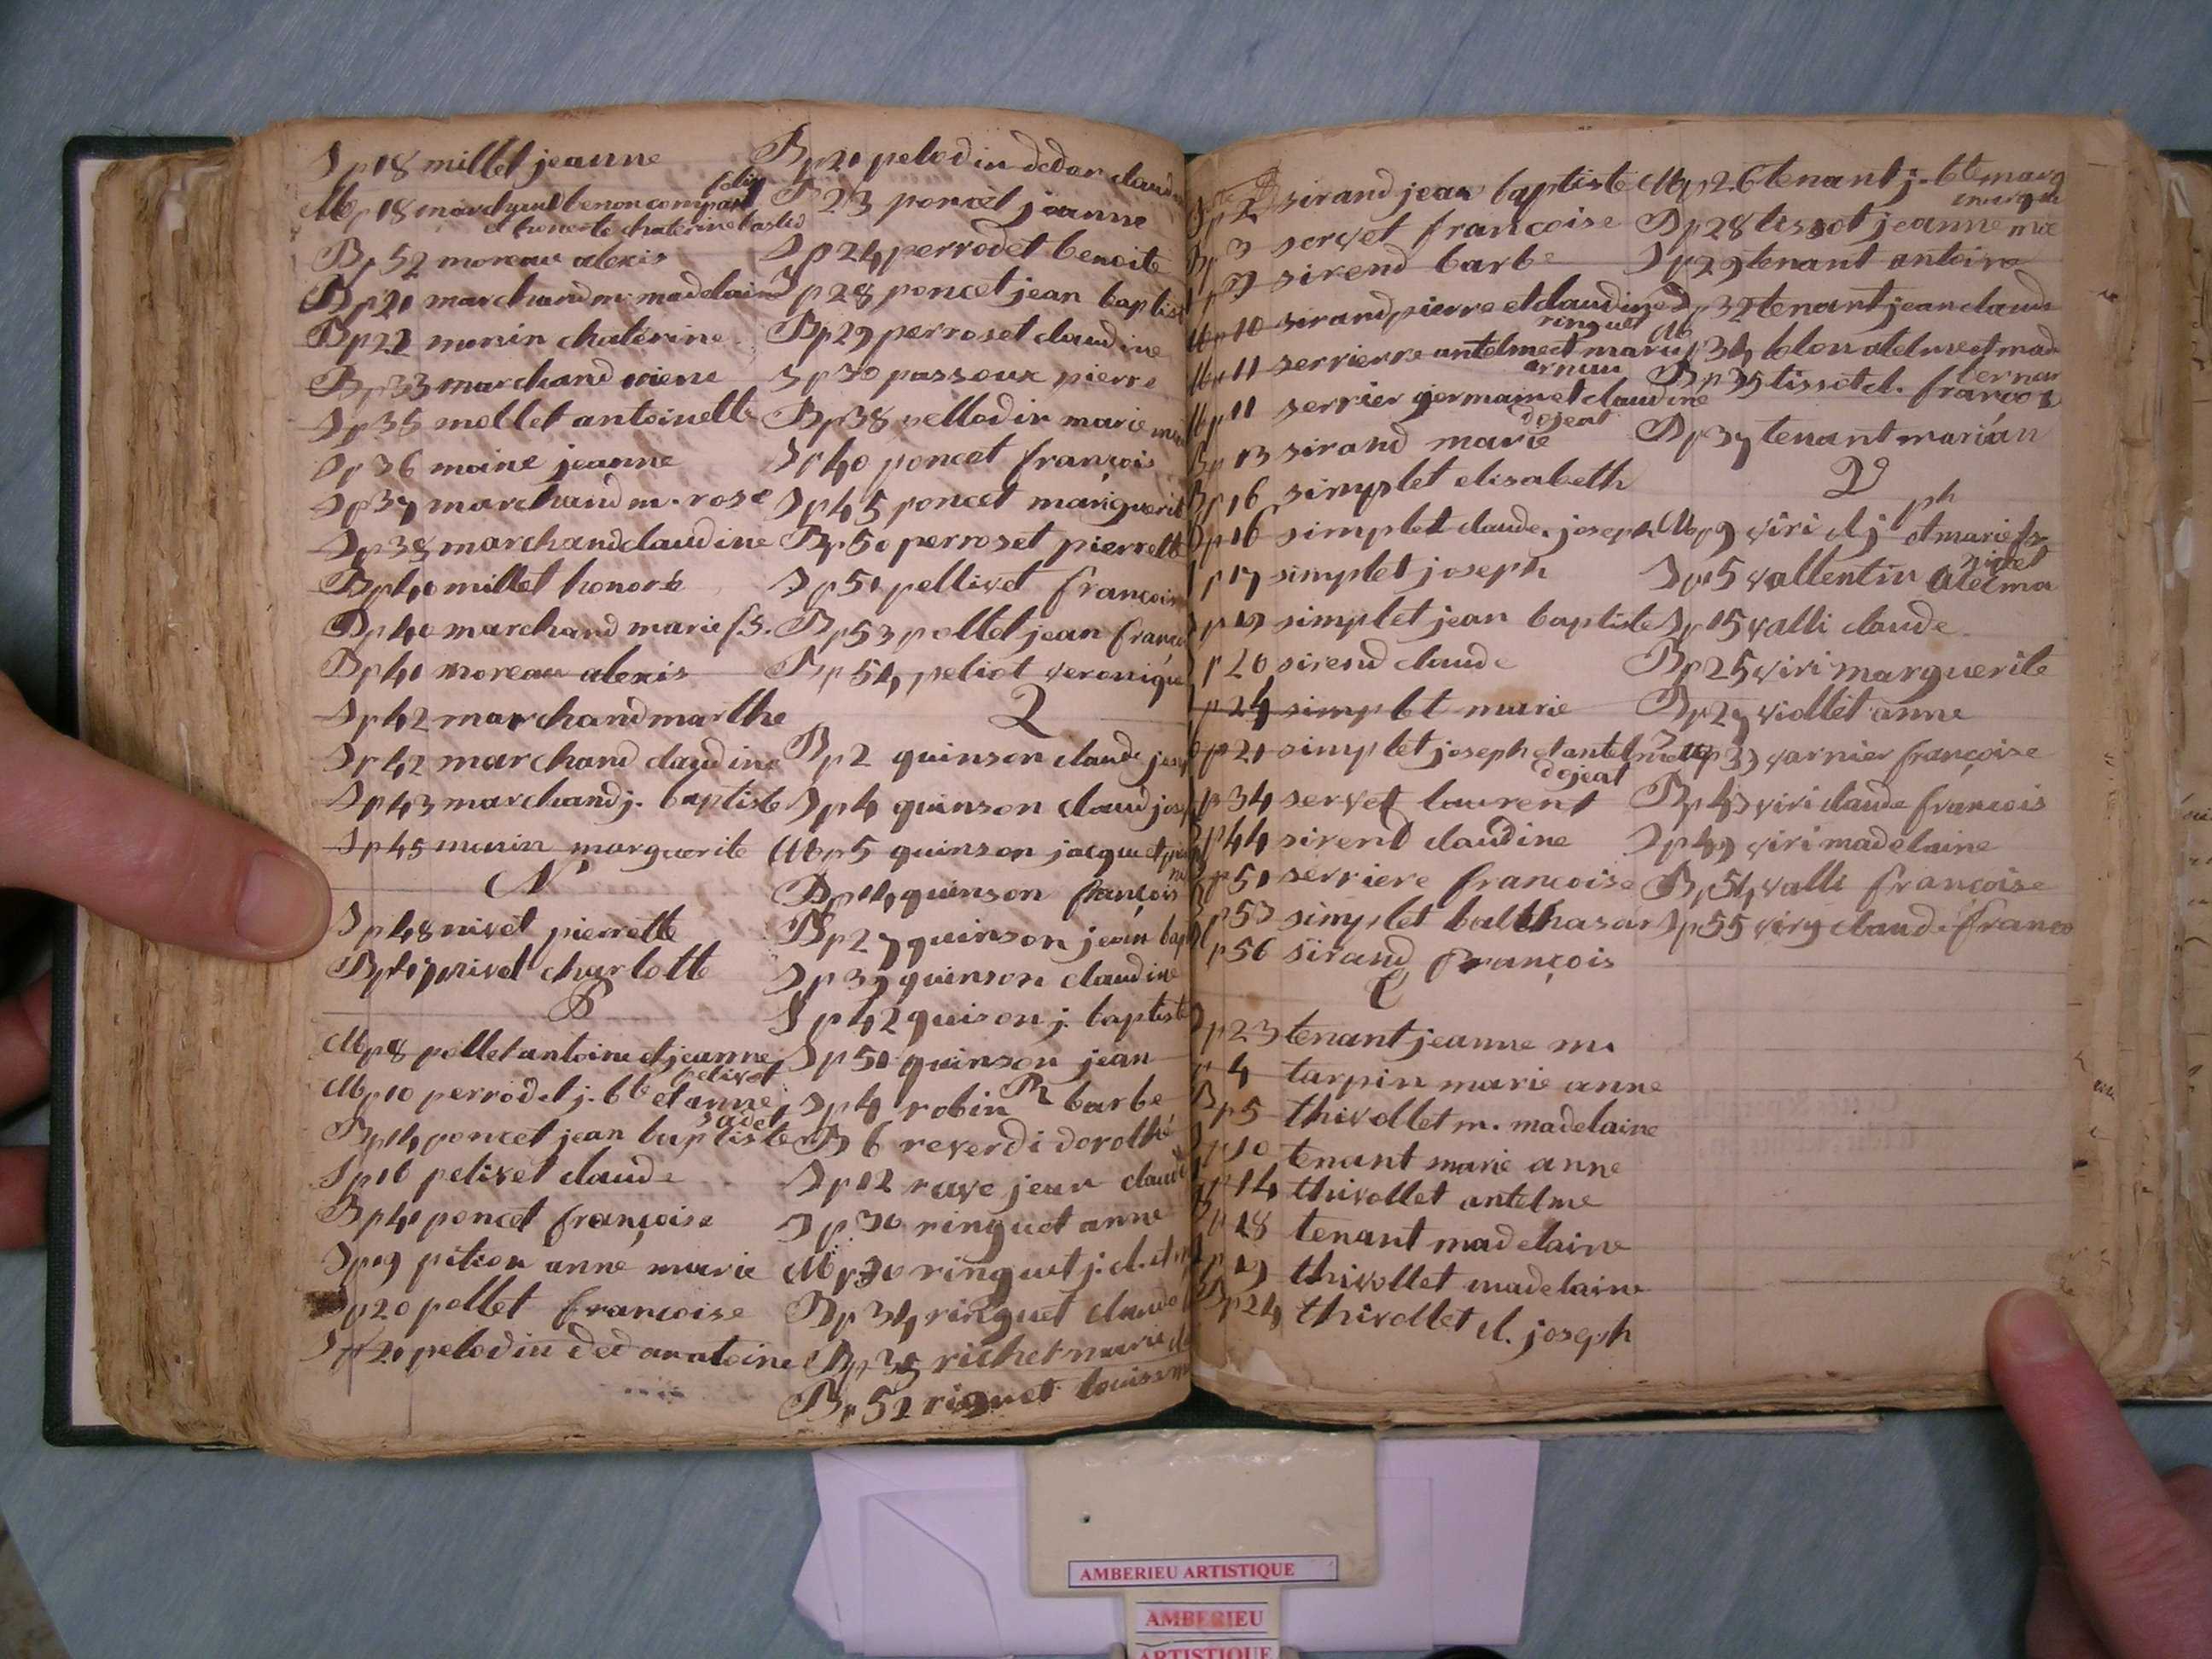 Sp18 millet jeanne
Mp18 marchand benon
et honorte chaterine
Bp52 moreau alexis
Bp21 marchand m. madelaine
Bp22 monin chaterine
Bp33 marchand
Sp35 mollet antoinette
Sp36 moine jeanne
Sp37 marchand m. rose
Sp38 marchand claudine
Bp40 millet honoré
Bp40 marchand marie f.s.
Bp41 moreau alexis
Sp42 marchand marthe
Sp42 marchand claudine
Sp43 marchand j. baptiste
Sp45 monin marguerite
N
Sp48 nivet pierrette
nivet charlotte
P
Mp8 pollet antoine et jeanne
pelivet
Mp10 perrodet j. bte et anne
sadet
Bp14 poncet jean baptiste
Sp16 pelivet claude
Bp41 poncet françoise
Sp19 pition anne marie
p20 pollet francoise
Sp20 pelodin ded anatoine
Bp21 pelodin dedor
23 poncet jeanne
Sp24 perrodet benoite
Sp28 poncet jean baptis
Bp29 perroset claudine
Sp30 passoux pierre
Bp38 pellodin marie
Sp40 poncet françois
Sp45 poncet marguerit
Bp50 perroset pierrette
Sp51 pellivet francoi
Bp53 pollet jean franc
Bp54 peliot veroniqu
Q
Bp2 quinson claude
Sp4 quinson claud jos
Mp5 quinson jacque
Bp14 quinson françois
Bp27 quinson jean bap
Sp37 quinson claudine
Sp42 quison j. baptist
Sp50 quinson jean
R
Sp4 robin barbe
B 6 reverdi dorothé
Sp12 rave jean claud
Sp30 ringuet anne
Mp30 ringuet j. cl. et
Bp34 ringuet claude
Bp35 richet marie
Bp52 riquet louise
p2 sirand jean baptiste
Bp3 servet francoise
p9 sirend barbe
Mp10 sirand pierre et claudine
ringuet
Mp11 serrierre antelme et marie
arneau
Mp11 serrier germain et claudine
dojeat
Bp13 sirand marie
Bp16 simplet elisabeth
Bp16 simplet claude joseph
p17 simplet joseph
p19 simplet jean baptiste
p20 sirend claude
p24 simplet marie
p21 simplet joseph et antelmette
dojeat
p34 servet laurent
p44 sirend claudine
p51 serriere francoise
p53 simplet balthasar
p56 sirand françois
T
p23 tenant jeanne m.
p4 tarpin marie anne
Bp5 thivollet m. madelaine
p10 tenant marie anne
p14 thivollet antelme
p18 tenant madelaine
p19 thivollet madelaine
Bp24 thivollet cl. joseph
Mp26 tenant j. bte marg
Bp28 tissot jeanne m
Sp29 tenant antoine
p32 tenant jean claud
M
p34 blon
bernar
Bp35 tissot cl. francois
Bp37 tenant marian
V
ph
Mp9 viri cl j et marie fs
nivet
Sp15 vallentin
Sp15 valli claude
Bp25 viri marguerite
Bp27 viollet anne
p33 varnier françoise
Bp43 viri claude françois
Sp49 viri madelaine
Bp54 valli françoise
Sp55 viry claude franco
AMBERIEU ARTISTIQUE
AMBERIEU
ARTISTIQUE